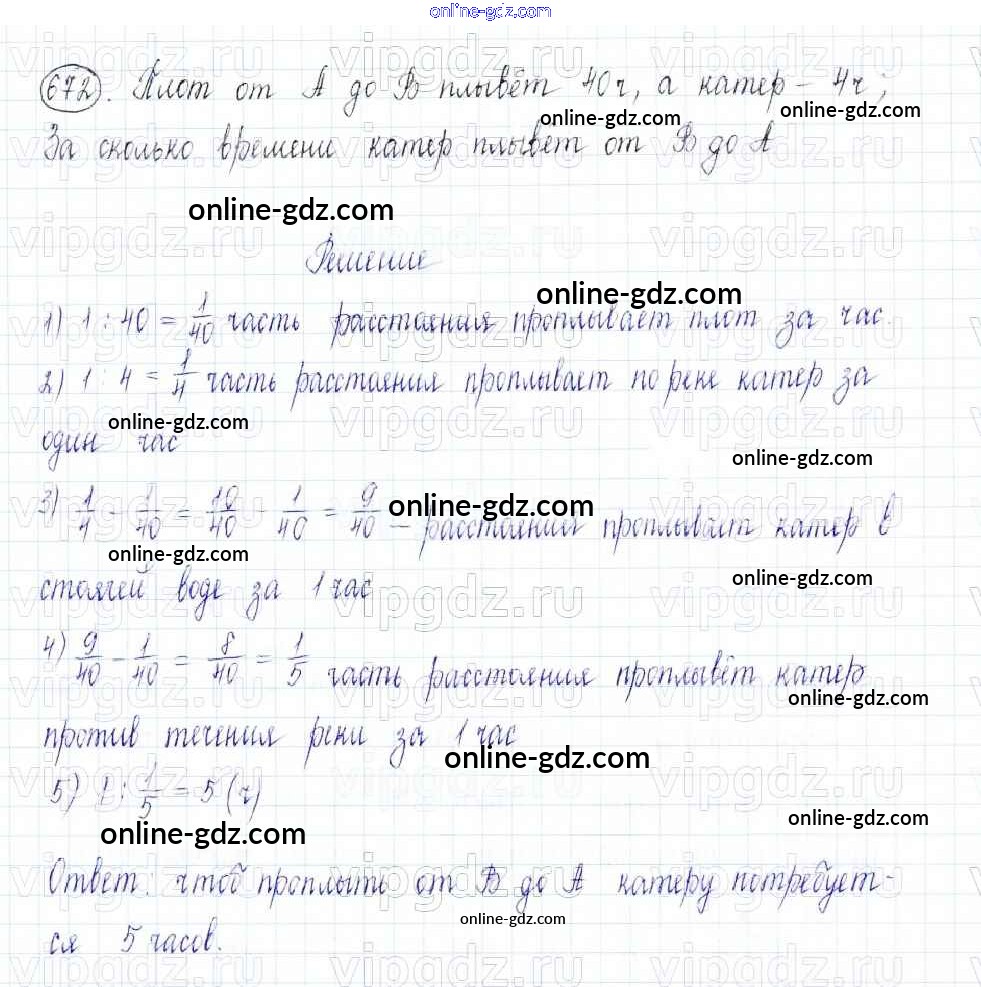 online-gdz.com
672. Плот от А до В плывёт 40ч, а катер – 4ч;
online-gdz.com
online-gdz.com
За сколько времени катер плывёт от В до А
online-gdz.com
Решение
online-gdz.com
1) 1 : 40 = 1/40 часть расстояния проплывает плот за час.
2) 1 : 4 = 1/4 часть расстояния проплывает по реке катер за
online-gdz.com
один час
online-gdz.com
3) 1/4 - 1/40 = 10/40 - 1/40 = 9/40 – расстояния проплывает катер в
online-gdz.com
online-gdz.com
стоячей воде за 1 час
online-gdz.com
4) 9/40 - 1/40 = 8/40 = 1/5 часть расстояния проплывёт катер
online-gdz.com
против течения реки за 1 час
online-gdz.com
5) 1 : 1/5 = 5 (ч)
online-gdz.com
online-gdz.com
Ответ: чтоб проплыть от В до А катеру потребует-
online-gdz.com
ся 5 часов.
vipgdz.ru